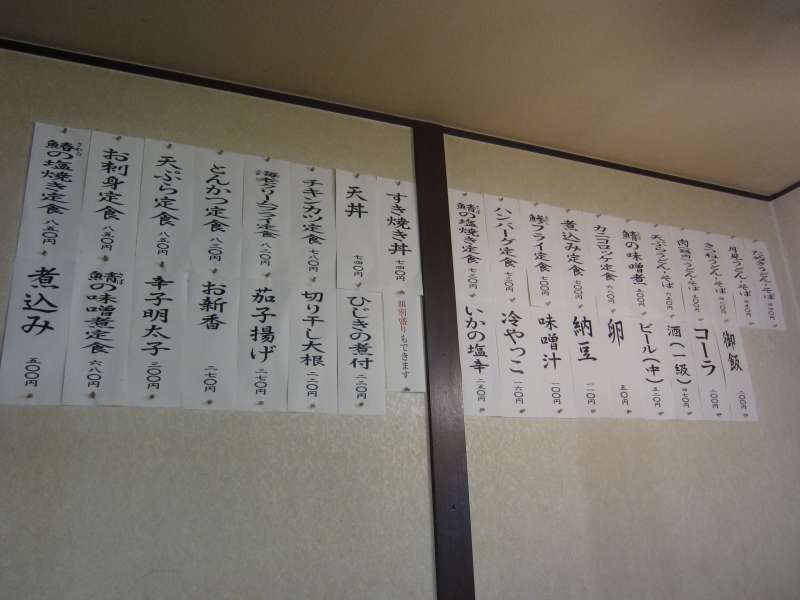 すき焼き丼 七四〇円
天丼 七四〇円
チキンカツ定食 七八〇円
海老クリームフライ定食 八二〇円
とんかつ定食 八三〇円
天ぷら定食 八五〇円
お刺身定食 八五〇円
鰆の塩焼き定食 八五〇円
さわら
類別盛りもできます
ひじきの煮付 二二〇円
切り干し大根 二二〇円
茄子揚げ 二七〇円
お新香 二七〇円
辛子明太子 三〇〇円
鯖の味噌煮定食 六八〇円
煮込み 五〇〇円
たぬきうどん・そば
月見うどん・そば
きつねうどん・そば
肉うどん・そば
天ぷらうどん・そば
鯖の味噌煮
カニコロッケ定食
煮込み定食 七〇〇円
鯵フライ定食 七〇〇円
ハンバーグ定食 七三〇円
鯖の塩焼き定食
御飯 二〇〇円
コーラ 二〇〇円
酒(一級) 四七〇円
ビール(中) 五二〇円
卵 五〇円
納豆 一一〇円
味噌汁 一〇〇円
冷やっこ 一六〇円
いかの塩辛 二五〇円